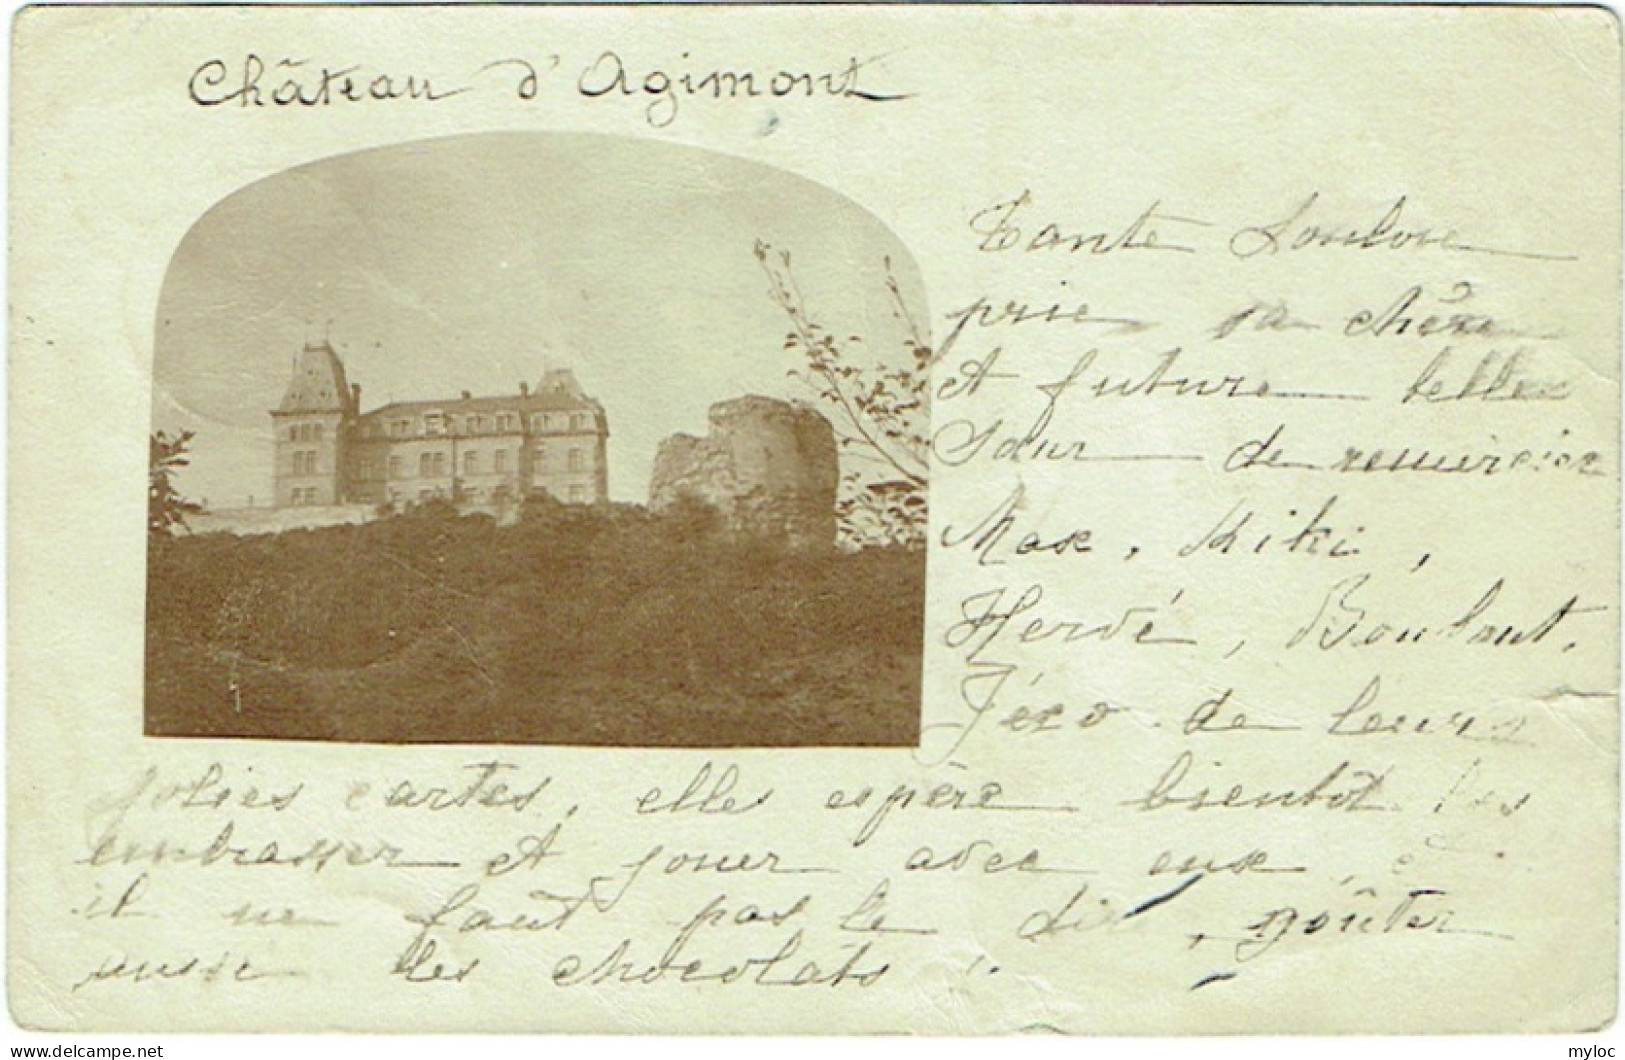 Château d'Agimont
Tante Loulou
prie sa chère
et future belle
Sœur de remercier
Max, Kiki,
Hervé, Boulout,
Jéro de leurs
jolies cartes, elles espère bientôt les
embrasser et jouer avec eux, et
il ne faut pas le dire, goûter
aussi les chocolats.
delcampe.net
myloc